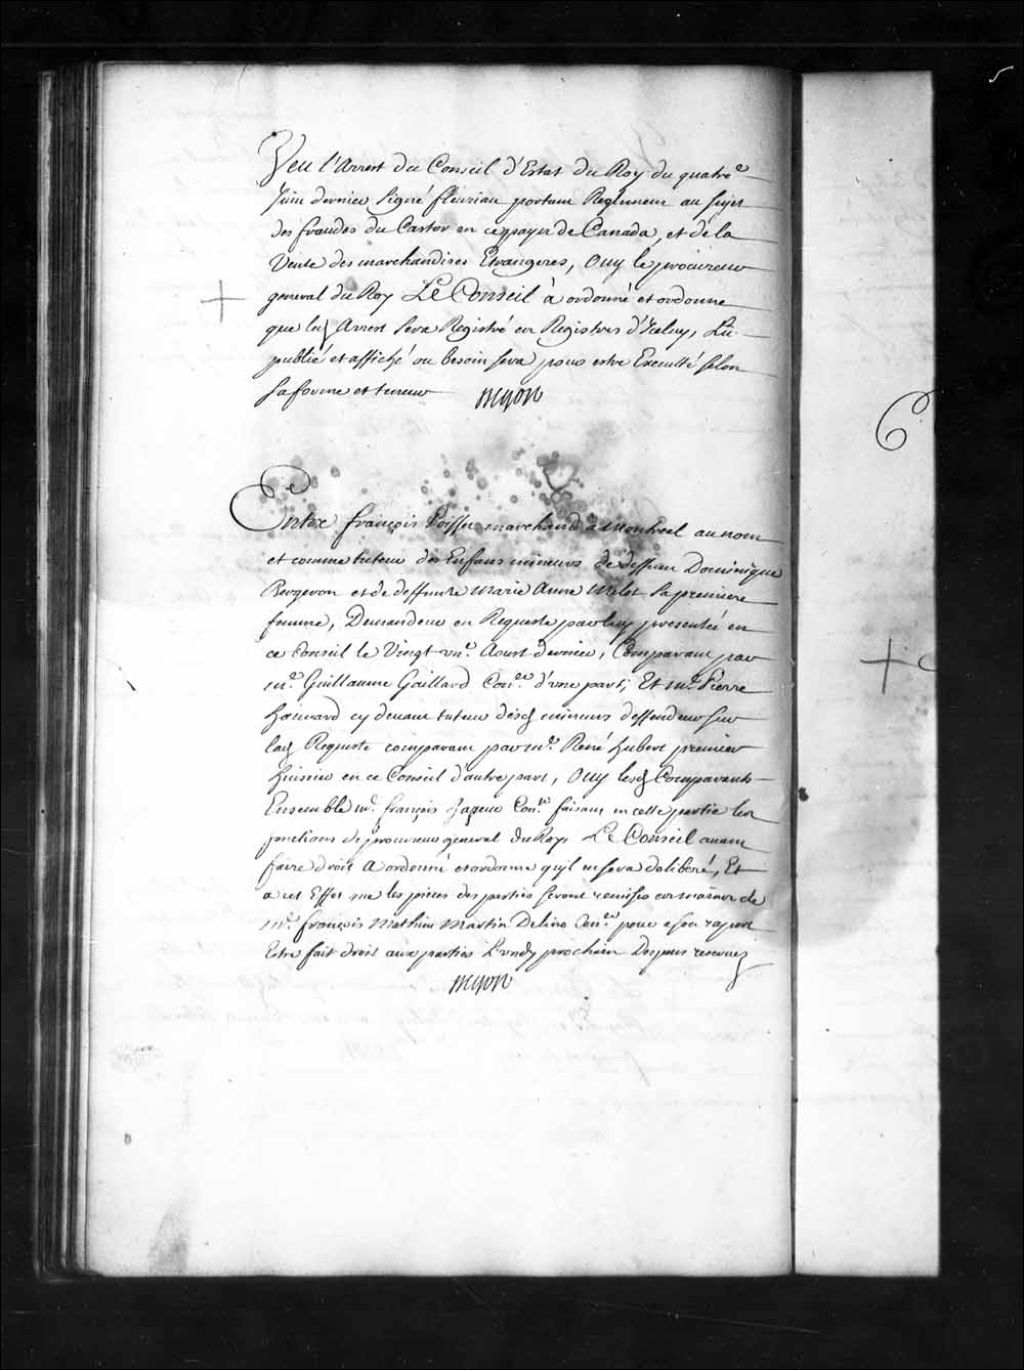 Veu l'Arrest du Conseil d'Estat du Roy du quatree
Juin dernier signé fleuriau portant Reglement au sujet
des fraudes du Castor en ce payis de Canada, et de la
Vente des marchandises Etrangeres, Ouy le procureur
general du Roy Le Conseil à ordonné et ordonne
que led Arrest sera Registré es Registres d'Iceluy, Lû
publié et affiché ou besoin sera pour estre Executté selon
sa forme et teneur
Entre françois marchand a Montreal au nom
et comme tuteur des Enfans mineurs de deffunt Dominique
Bergeron et de deffunte Marie Anne Milot sa premiere
femme, Demandeur en Requeste par luy presentée en
ce Conseil le Vingt une Aoust dernier, Comparant par
me Guillaume Gaillard Coner d'une part; Et me Pierre
cy devant tuteur desd mineurs deffendeur sur
lad Requeste comparant par me René hubert premier
huissier en ce Conseil d'autre part, Ouy lesd Comparants
Ensemble me françois hazeur Coner faisant en cette partie les
fonctions de procureur general du Roy Le Conseil avant
faire droit A ordonné et ordonne qu'jl en sera deliberé, Et
a cet Effet que les pieces des parties seront remises es mains de
me françois Mathieu Martin Delino Coner pour a son raport
Estre fait droit aux parties Lundy prochain Despens reservez